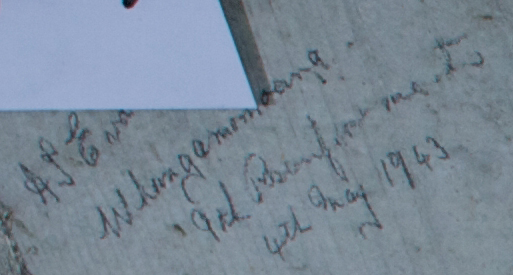 A J Eva
Whangamomona
9th Reinforcements
4th May 1943